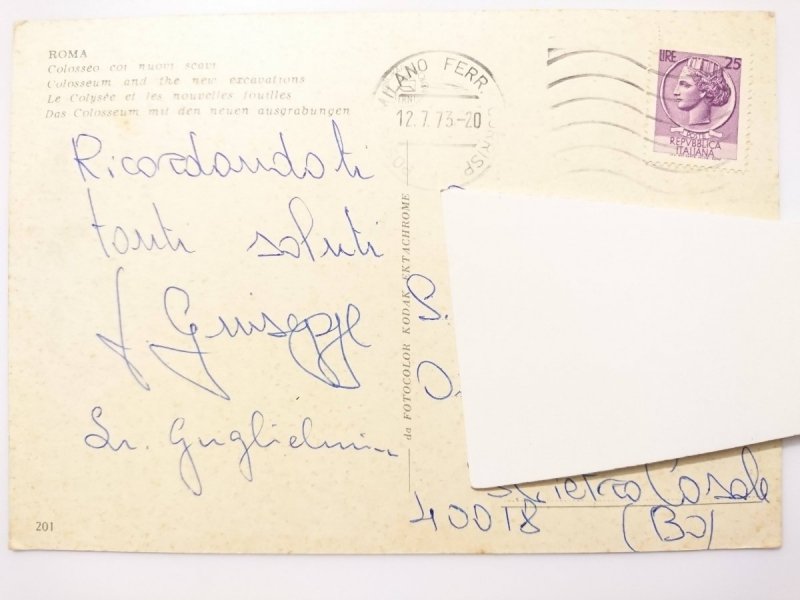 ROMA
Colosseo coi nuovi scavi
Colosseum and the new excavations
Le Colysée et les nouvelles fouilles
Das Colosseum mit den neuen ausgrabungen
MILANO FERR.
12.7.73-20
LIRE 25
POSTE
REPVBBLICA
ITALIANA
Ricordandoti
tanti saluti
Giuseppe
Sr. Guglielmina
da FOTOCOLOR KODAK EKTACHROME
S.
S. Pietro Casale
40018 (Bo)
201